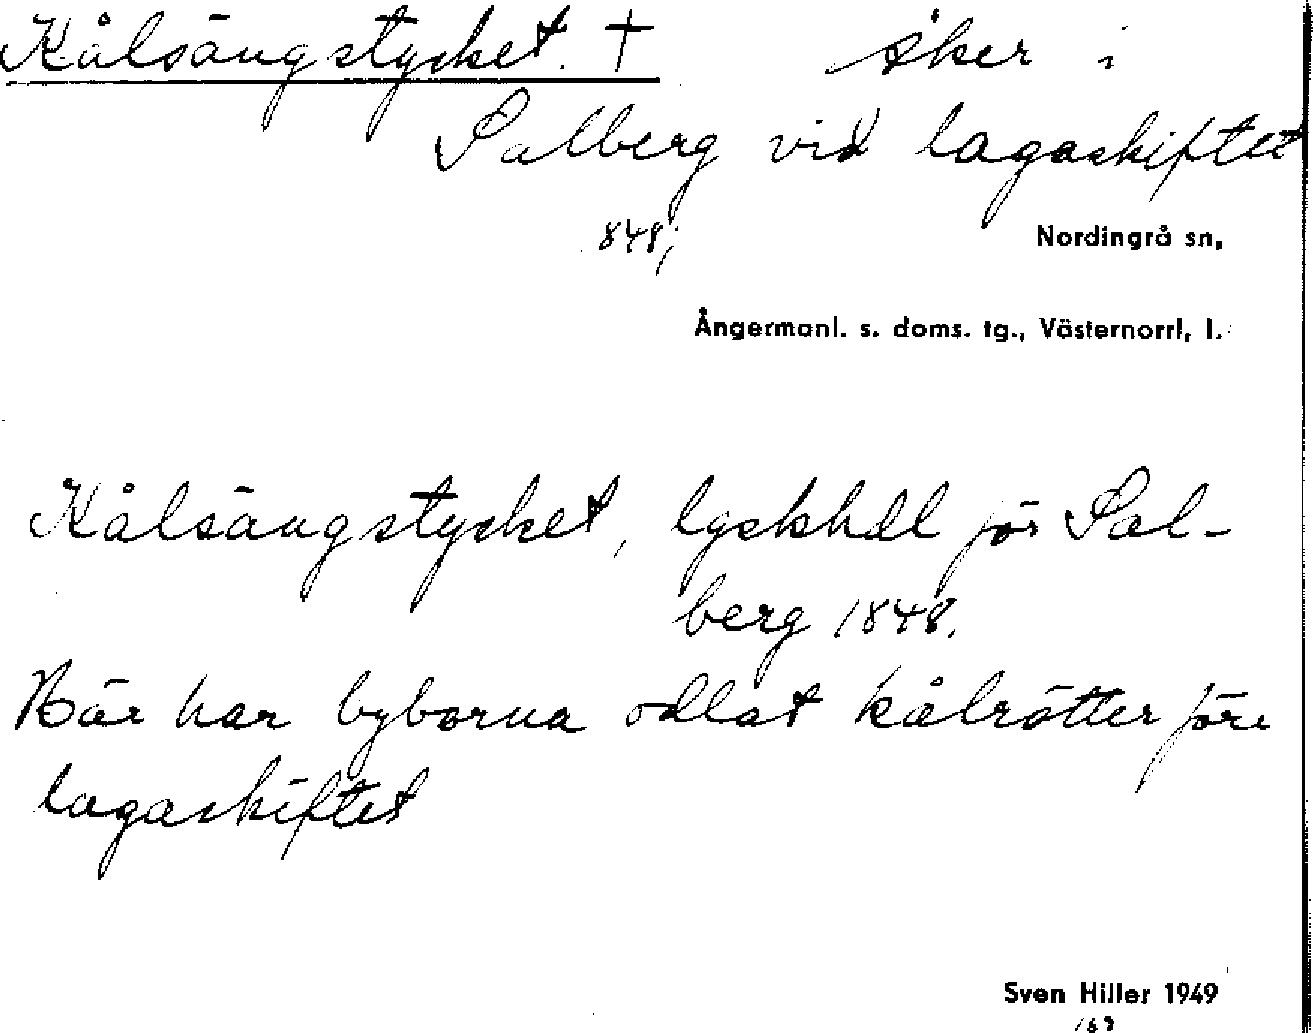 Kålsängstycket. † åker i
Salberg vid lagaskiftet
848;
Nordingrå sn,
Ångermanl. s. doms. tg., Västernorrl, l.
Kålsängstycket, lgskhdl för Sal-
berg 1848.
Här har byborna odlat kålrötter före
lagaskiftet
Sven Hiller 1949